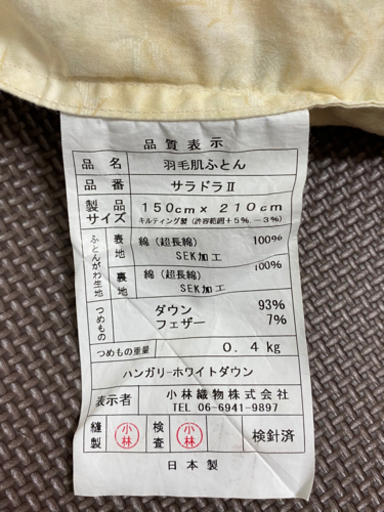 品質表示
品名 羽毛肌ふとん
品番 サラドラⅡ
製品サイズ 150cm×210cm
キルティング製(許容範囲+5%,-3%)
ふとんがわ生地
表地 綿(超長綿) 100%
SEK加工
裏地 綿(超長綿) 100%
SEK加工
つめもの
ダウン 93%
フェザー 7%
つめもの重量 0.4kg
ハンガリーホワイトダウン
表示者 小林織物株式会社
TEL 06-6941-9897
縫製 小林 検査 小林 検針済
日本製